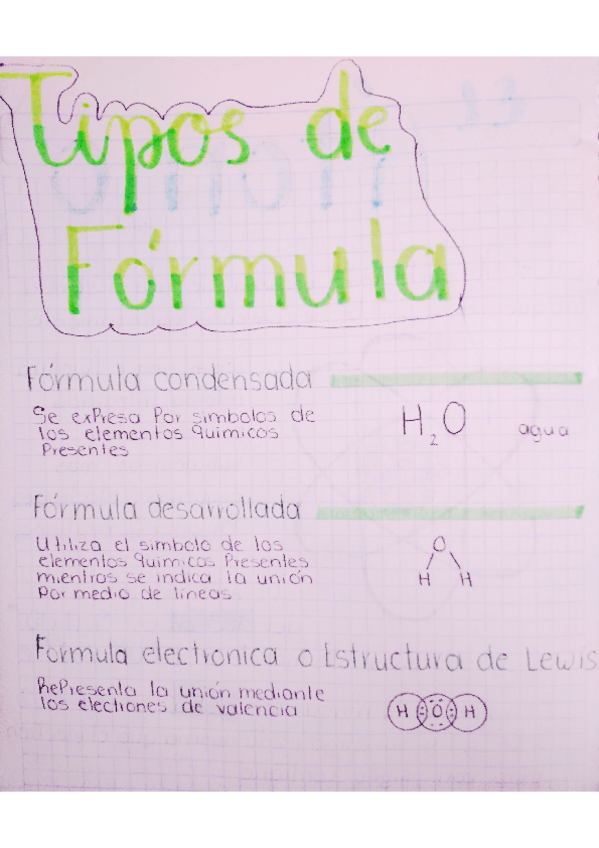 Tipos de
Fórmula
Fórmula condensada
Se expresa por simbolos de
los elementos quimicos
Presentes
H₂O agua
Fórmula desarrollada
Utiliza el simbolo de los
elementos quimicos Presentes
mientras se indica la unión
por medio de lineas
O
H H
Formula electronica o Estructura de Lewis
Representa la unión mediante
los electrones de valencia
H O H